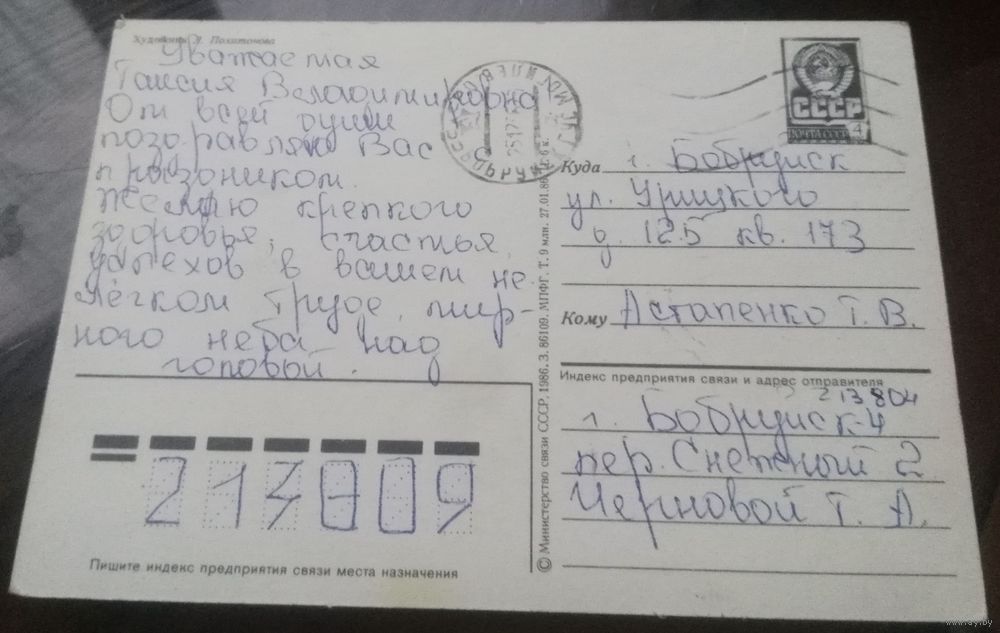 Художник Л. Похитонова
Уважаемая
Таисия Владимировна
От всей души
поздравляю Вас
праздником.
Желаю крепкого
здоровья, счастья,
успехов в вашем не
лёгком труде, мир-
ного неба над
головой.
СССР
ПОЧТА СССР 4
Куда г. Бобруйск
ул. Урицкого
д. 125 кв. 173
Кому Астапенко Т. В.
Индекс предприятия связи и адрес отправителя
213804
г. Бобруйск-4
пер. Снежный 2
Черновой Т. А.
213809
Пишите индекс предприятия связи места назначения
© Министерство связи СССР, 1986. З. 86109. МПФГ. Т. 9 млн. 27.01.86
www.ay.by